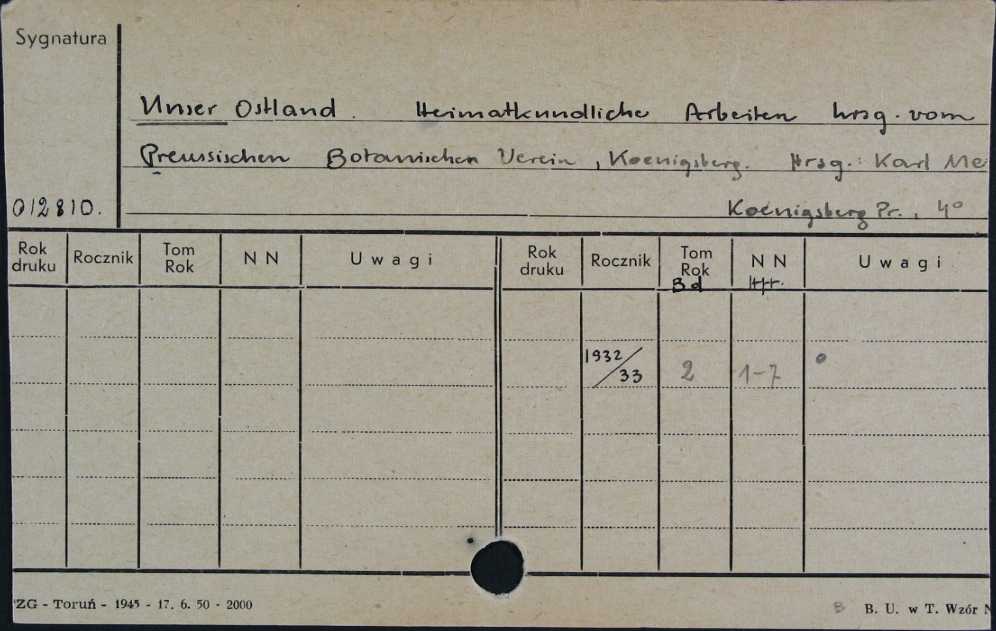 Sygnatura
Unser Ostland. Heimatkundliche Arbeiten hrsg. vom
Preussischen Botanischen Verein, Koenigsberg. Hrsg.: Karl Me
012810. Koenigsberg Pr., 4°
Rok druku Rocznik Tom Rok N N Uwagi Rok druku Rocznik Tom Rok Bd N N Hft. Uwagi
1932/33 2 1-7 o
ZG - Toruń - 1945 - 17. 6. 50 - 2000 B B. U. w T. Wzór N